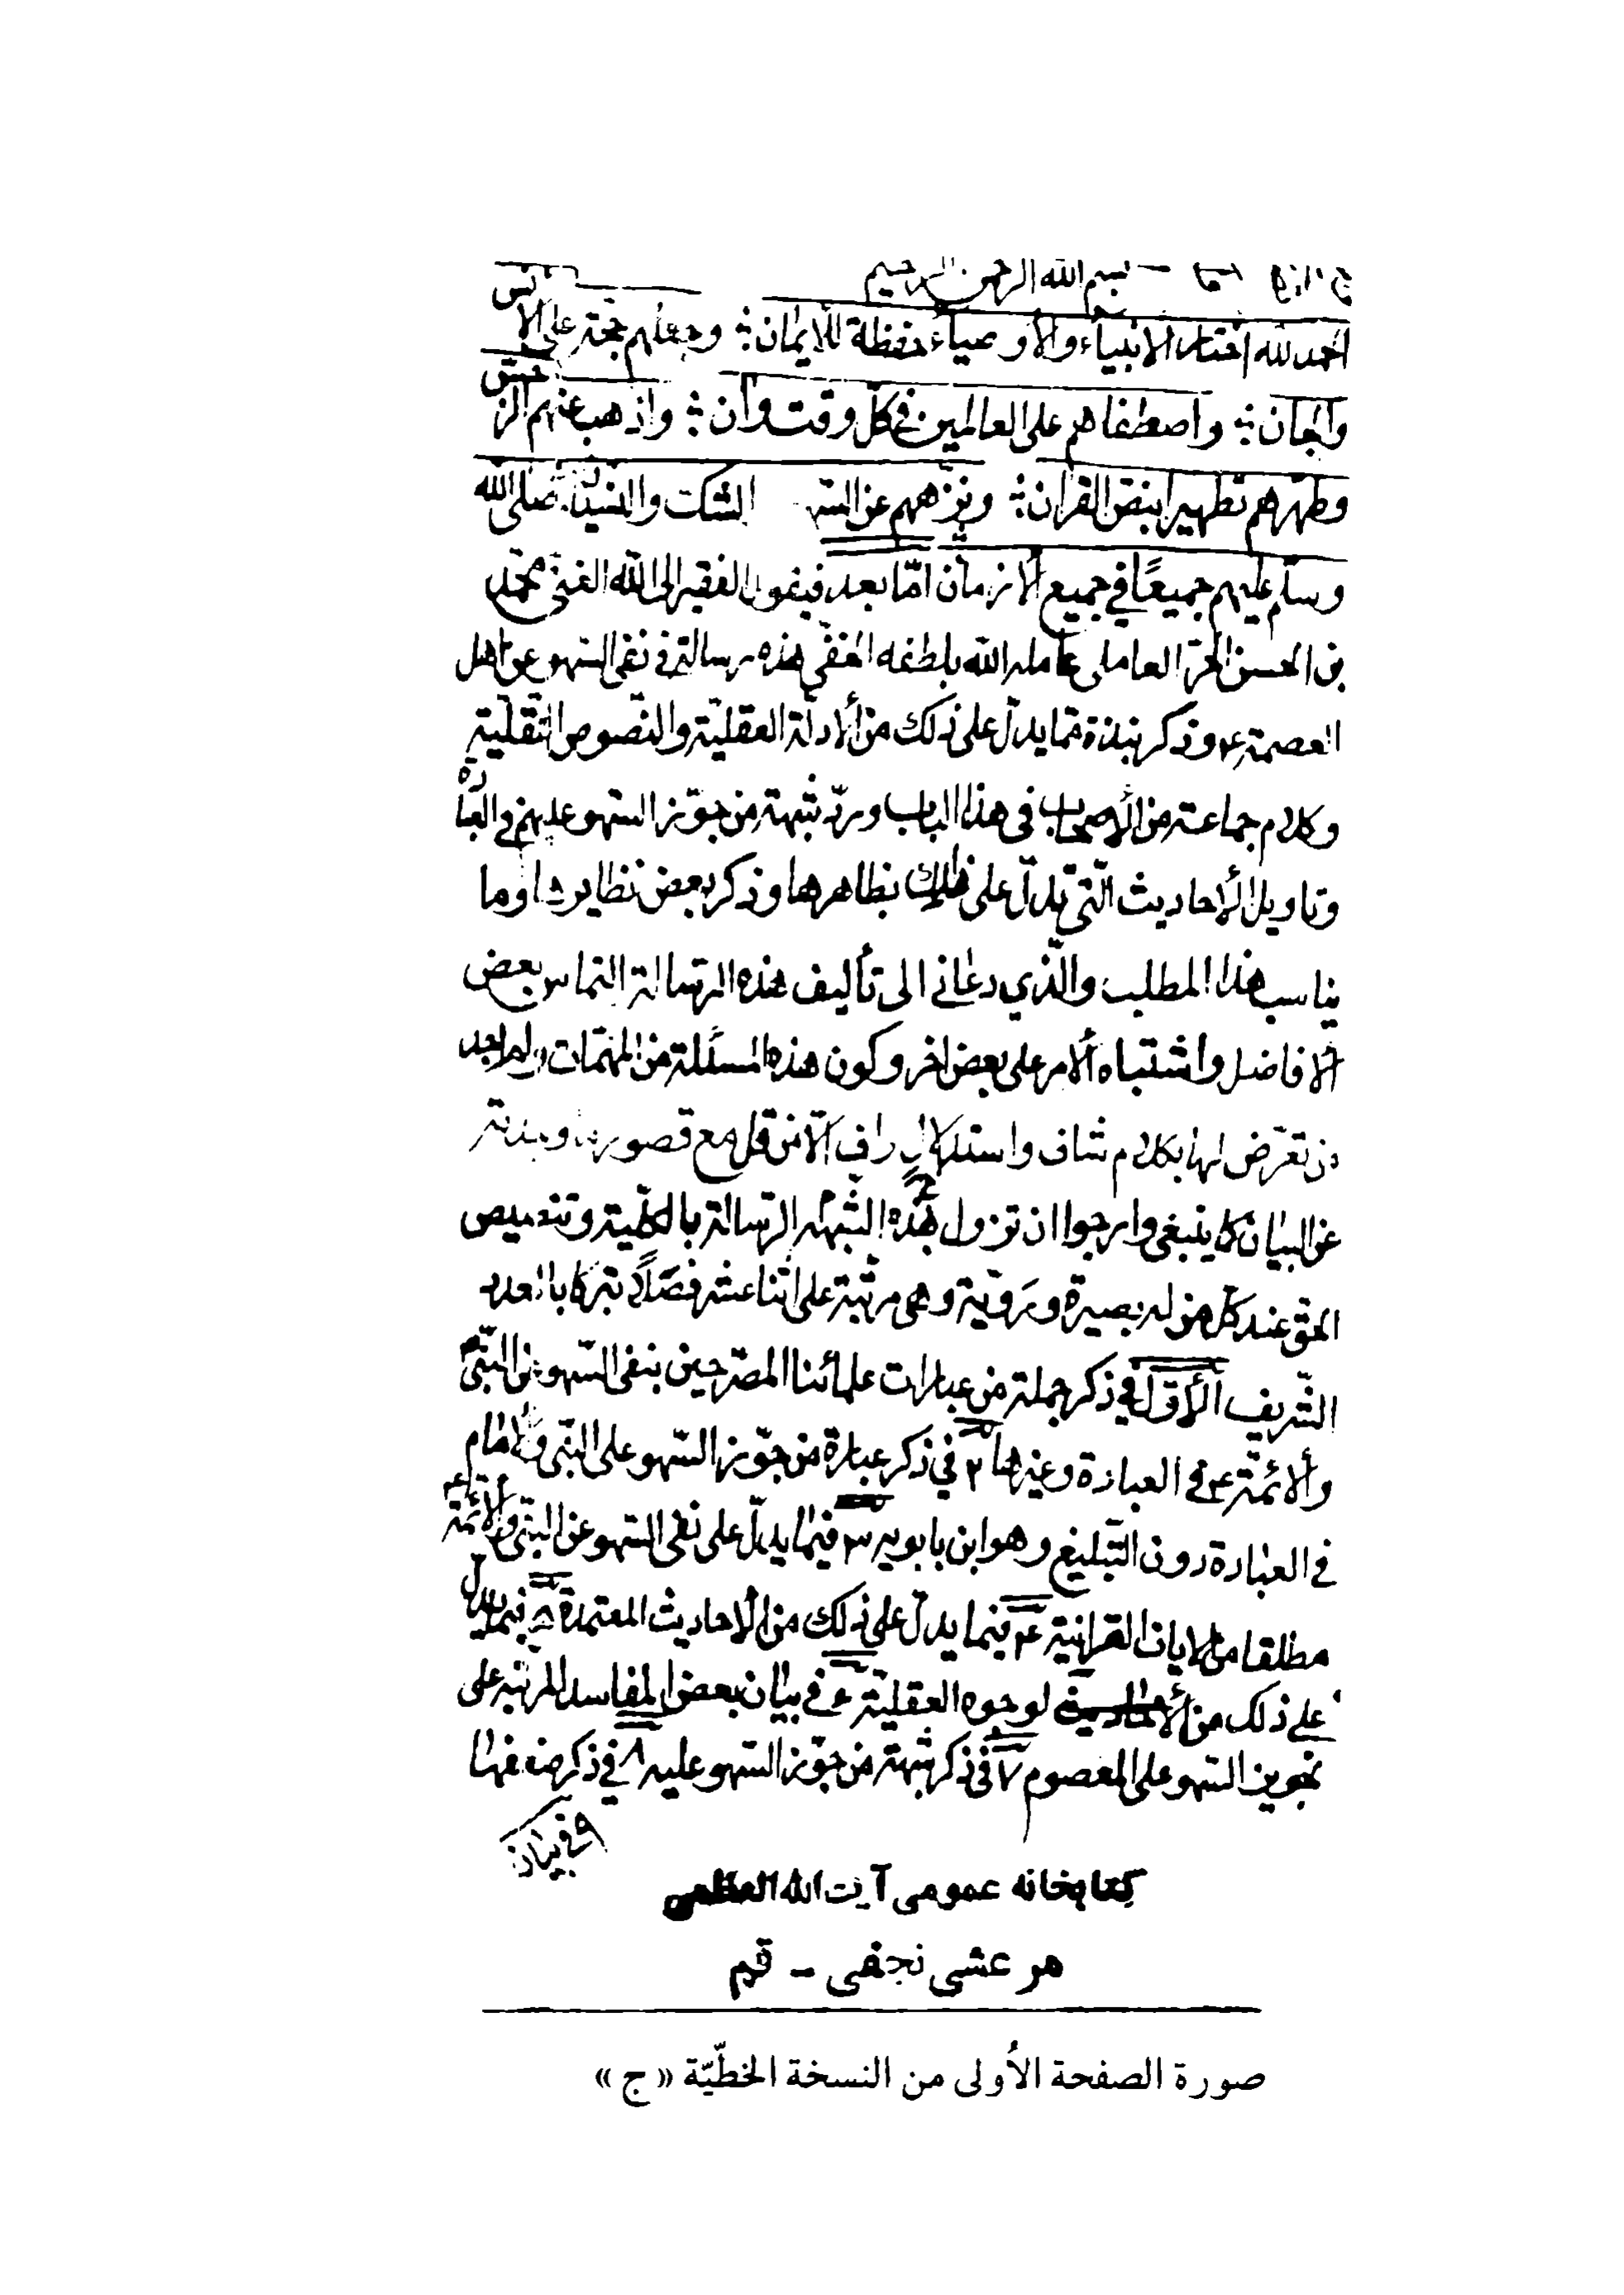 بسم الله الرحمن الرحيم
الحمد لله اختار الانبياء والأوصياء حفظة للايمان؛ وجعلهم حجة على الانس
والجان؛ واصطفاهم على العالمين في كل وقت وآن؛ واذهب عنهم الرجس
وطهرهم تطهيرا بنص القرآن؛ ونزههم عن السهو الشك والنسيان صلى الله
وسلم عليهم جميعًا في جميع الأزمان امّا بعد فيقول الفقير الى الله الغني محمّد
بن الحسن الحرّ العاملى عامله الله بلطفه الخفي هذه رسالة في نفى السهو عن اهل
العصمة ع وذكر نبذة ممّا يدلّ على ذلك من الأدلّة العقليّة والنّصوص النّقليّة
وكلام جماعة من الأصحاب في هذا الباب وردّ شبهة من جوّز السّهو عليهم في العبادة
وتاويل الأحاديث الّتي تدلّ على ذلك بظاهرها وذكر بعض نظايرها وما
يناسب هذا المطلب والّذي دعاني الى تأليف هذه الرّسالة التماس بعض
الأفاضل واشتباه الأمر على بعض اخر وكون هذه المسئلة من المهمّات ولم اجد
من تعرّض لها بكلام شاف واستدلالٍ وافٍ الّا من قل مع قصور
عن البيان كما ينبغي وارجوا ان تزول بهذه الشّبهة الرّسالة بالكلّية وتتمحيص
الحق عند كلّ من له بصيرة وروّية وهى مرتّبة على اثنا عشر فصلًا تبركا بالعدد
الشّريف الأوّل في ذكر جملة من عبارات علمائنا المصرّحين بنفى السّهو عن النّبيّ
والأئمّة ع في العبادة وغيرها ٢ في ذكر عبارة من جوّز السّهو على النّبي والامام
في العبادة دون التّبليغ وهو ابن بابويه ٣ فيما يدلّ على نفى السّهو عن النّبي والأئمّة ع
مطلقا من الايات القرانية ٤ فيما يدلّ على ذلك من الأحاديث المعتمدة ٥ فيما يدل
على ذلك من الوجوه العقليّة ٦ في بيان بعض المفاسد المترتّبة على
تجويز السّهو على المعصوم ٧ في ذكر شبهة من جوّز السّهو عليه ٨ في ذكر ضعفها
٩ في بيان
كتابخانه عمومى آيت الله العظمى
مرعشى نجفى - قم
صورة الصفحة الأولى من النسخة الخطّيّة « ج »